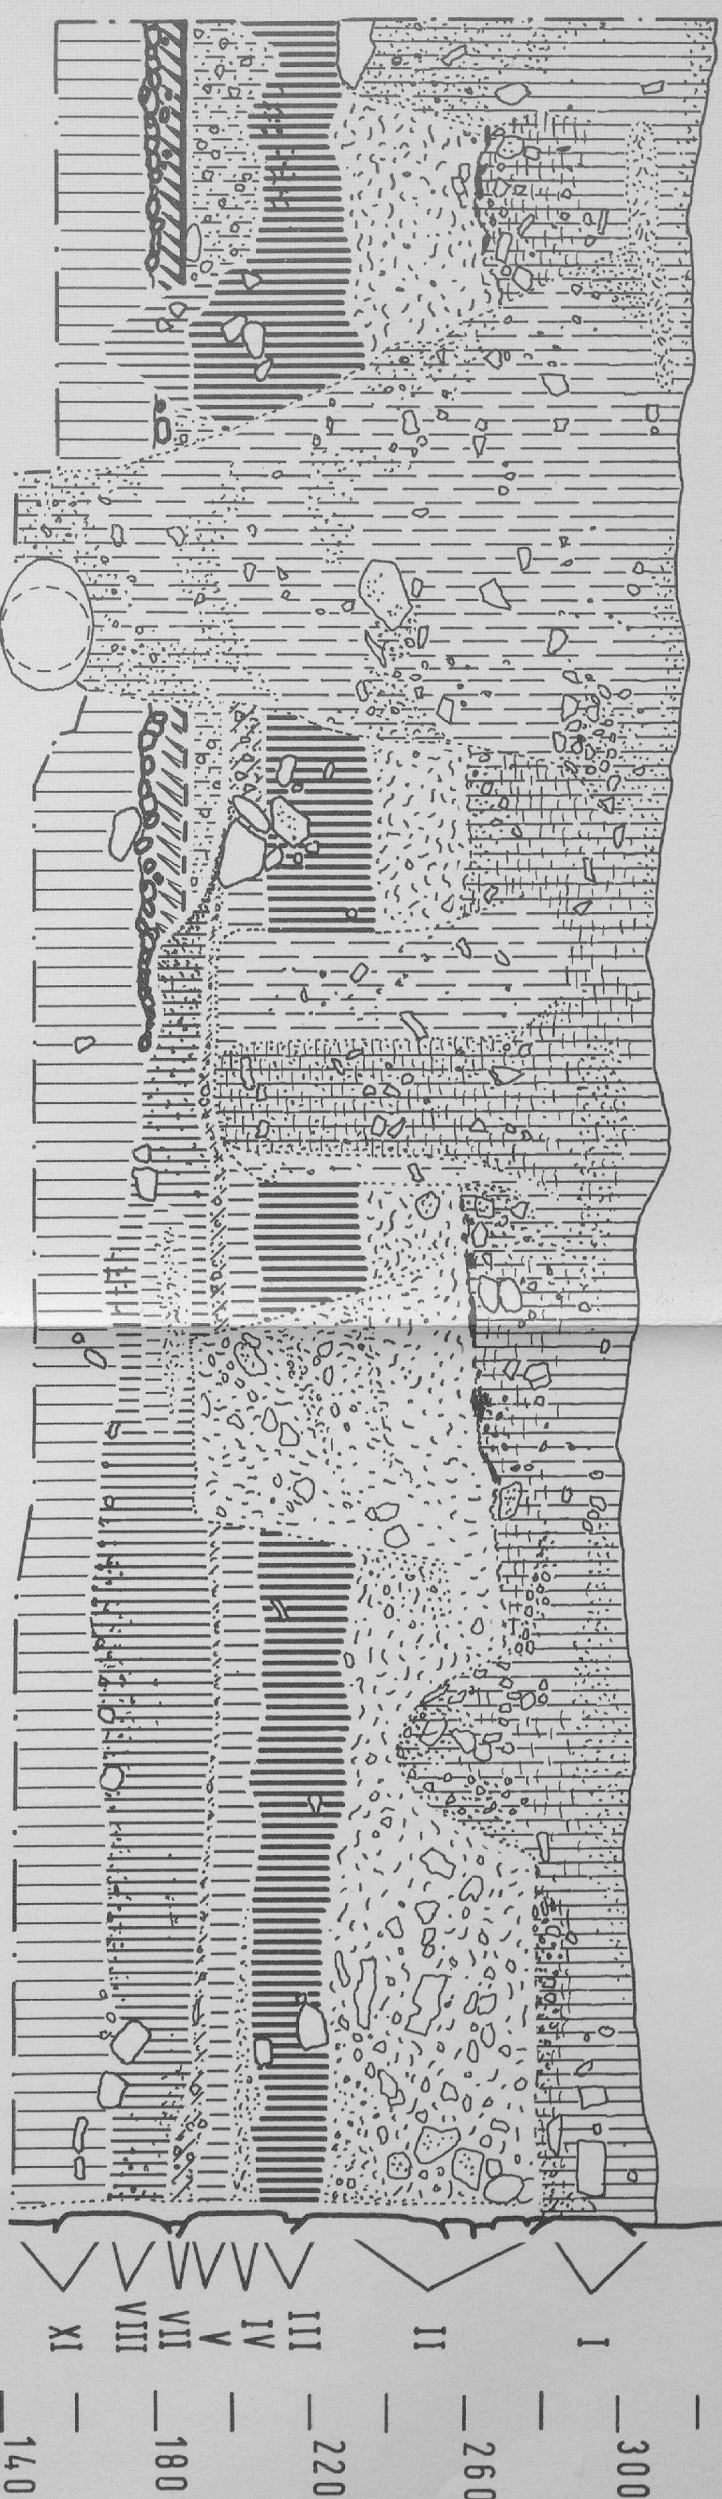 I
II
III
IV
V
VII
VIII
XI
300
260
220
180
140